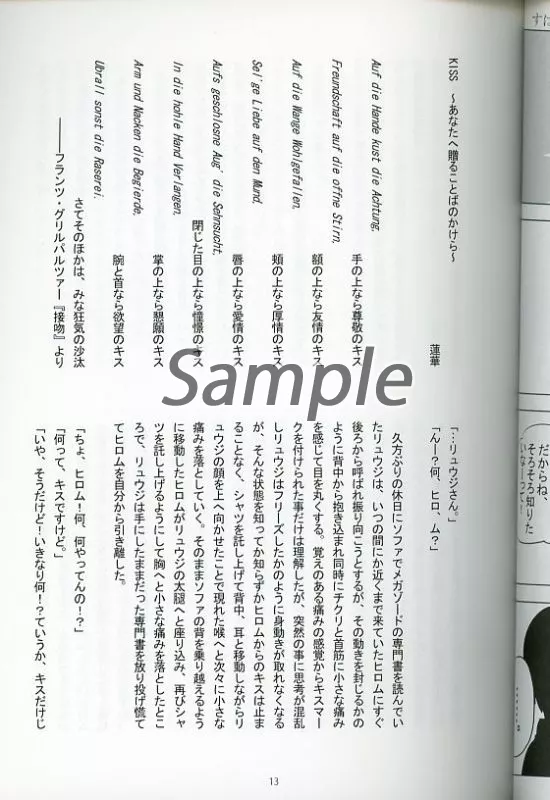 KISS ～あなたへ贈ることばのかけら～
蓮華
Auf die Hande kust die Achtung,
手の上なら尊敬のキス
Freundschaft auf die offne Stirn,
額の上なら友情のキス
Auf die Wange Wohlgefallen,
頬の上なら厚情のキス
Sel'ge Liebe auf den Mund,
唇の上なら愛情のキス
Aufs geschlosne Aug' die Sehnsucht,
閉じた目の上なら憧憬のキス
In die hohle Hand Verlangen,
掌の上なら懇願のキス
Arm und Nacken die Begierde,
腕と首なら欲望のキス
Ubrall sonst die Raserei.
さてそのほかは、みな狂気の沙汰
――フランツ・グリルパルツァー『接吻』より
「…リュウジさん。」
「んー？何、ヒロ、ム？」
久方ぶりの休日にソファでメガゾードの専門書を読んでい
たリュウジは、いつの間にか近くまで来ていたヒロムにすぐ
後ろから呼ばれ振り向こうとするが、その動きを封じるかの
ように背中から抱き込まれ同時にチクリと首筋に小さな痛み
を感じて目を丸くする。覚えのある痛みの感覚からキスマー
クを付けられた事だけは理解したが、突然の事に思考が混乱
しリュウジはフリーズしたかのように身動きが取れなくなる
が、そんな状態を知ってか知らずかヒロムからのキスは止ま
ることなく、シャツを託し上げて背中、耳と移動しながらリ
ュウジの顔を上へ向かせたことで現れた喉へと次々に小さな
痛みを落としていく。そのままソファの背を乗り越えるよう
に移動したヒロムがリュウジの太腿へと座り込み、再びシャ
ツを託し上げるようにして胸へと小さな痛みを落としたとこ
ろで、リュウジは手にしたままだった専門書を放り投げ慌て
てヒロムを自分から引き離した。
「ちょ、ヒロム！何、何やってんの！？」
「何って、キスですけど。」
「いや、そうだけど！いきなり何！？ていうか、キスだけじ
13
Sample
すに
だからね、
そろそろ知りた
いなって！